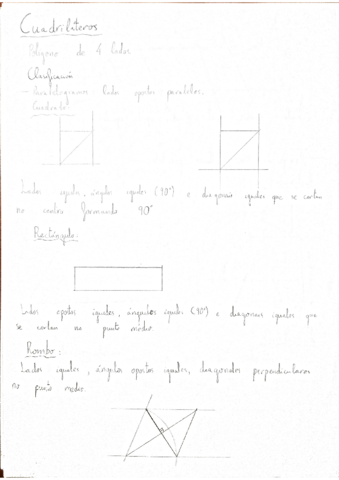 Cuadriláteros
Polígono de 4 lados
Clasificación
- Paralelogramos: lados opostos paralelos.
Cuadrado:
Lados iguais, ángulos iguales (90°) e diagonais iguales que se cortan
no centro formando 90°
Rectángulo:
Lados opostos iguales, ángulos iguales (90°) e diagonais iguales que
se cortan no punto medio.
Rombo:
Lados iguales, ángulos opostos iguales, diagonales perpendiculares
no punto medio.